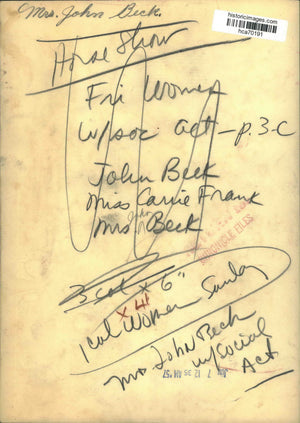 historicimages.com
hca70191
Mrs. John Beck.
Horse Show
Fri Women
w/soc act - p. 3-C
John Beck
Miss Carrie Frank
John
Mrs Beck
CHRONICLE FILES
3 col x 6"
x 4"
1 col Women Sunday
Mrs John Beck
w/social
Act.